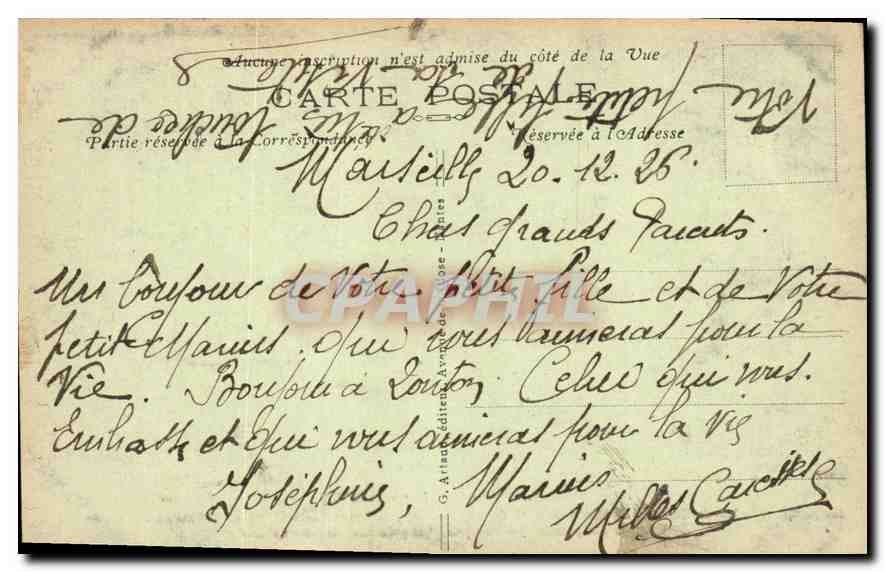 Aucune inscription n'est admise du côté de la Vue
CARTE POSTALE
Partie réservée à la Correspondance
Réservée à l'Adresse
Votre petite fille
de la Vie
Marseille 20.12.26.
Chers grands Parents.
Un bonjour de Votre petite fille et de Votre
petit Marius. qui vous aimeras pour la
Vie. Bonjour à Tonton, Celui qui vous.
Embasse et qui vous aimeras pour la vie
Joséphine, Marius
Milles Caresses
G. Artaud, éditeur, Avenue de Nantes
CPAPHIL